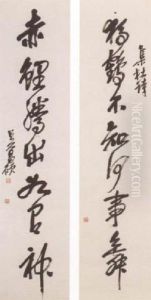 集杜詩
獨鶴不知何事舞
赤鯉騰出如有神
吳昌碩
NiceArtGallery.com